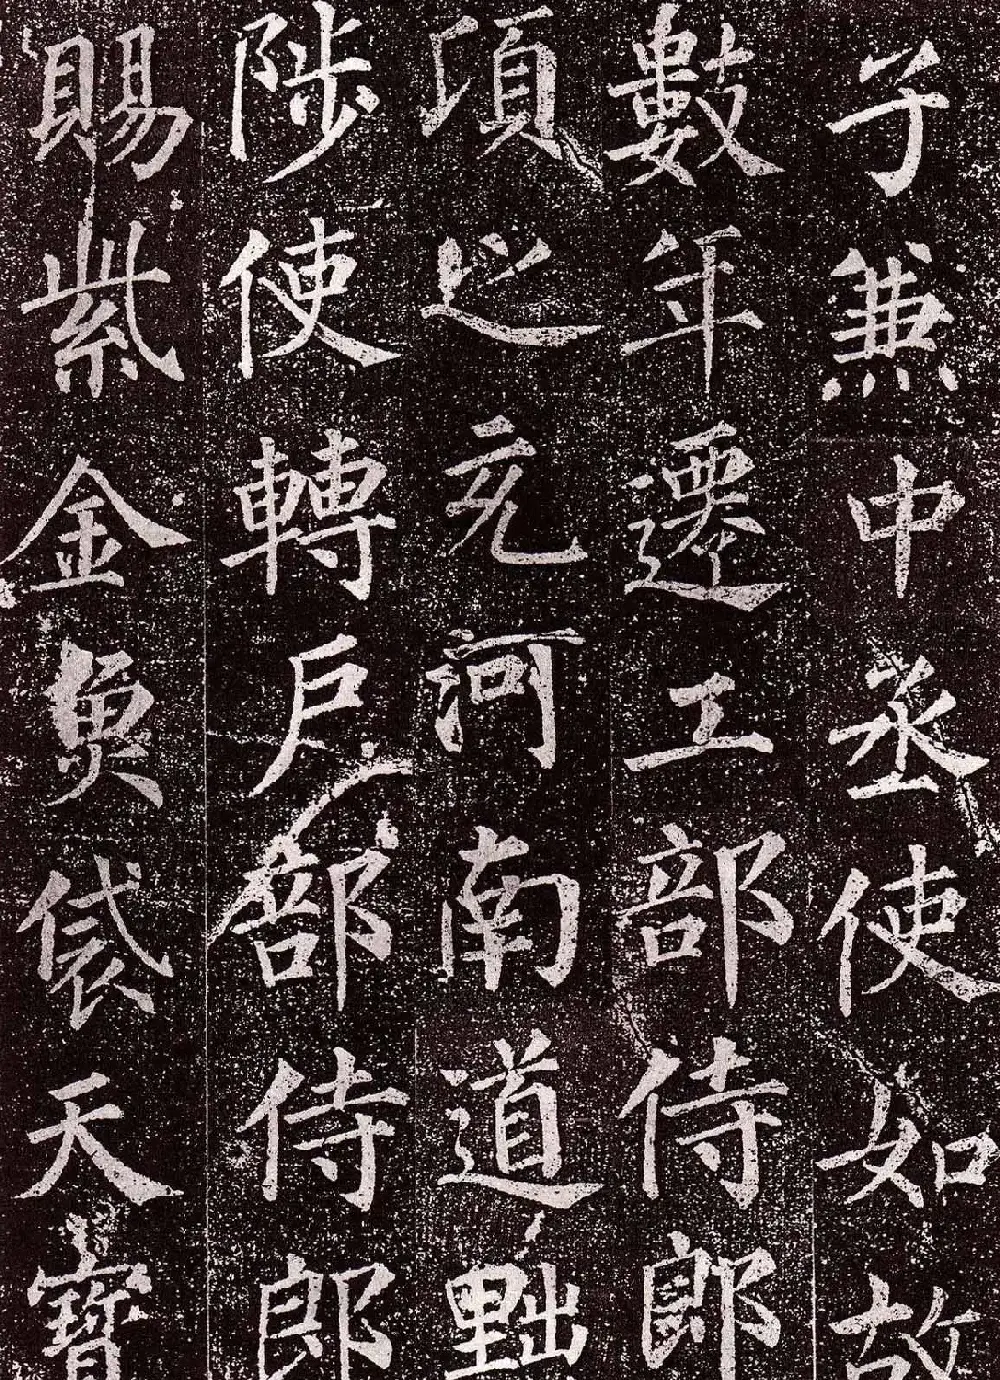 子兼中丞使如故
數年遷工部侍郎
項之充河南道黜
陟使轉戶部侍郎
賜紫金魚袋天寶